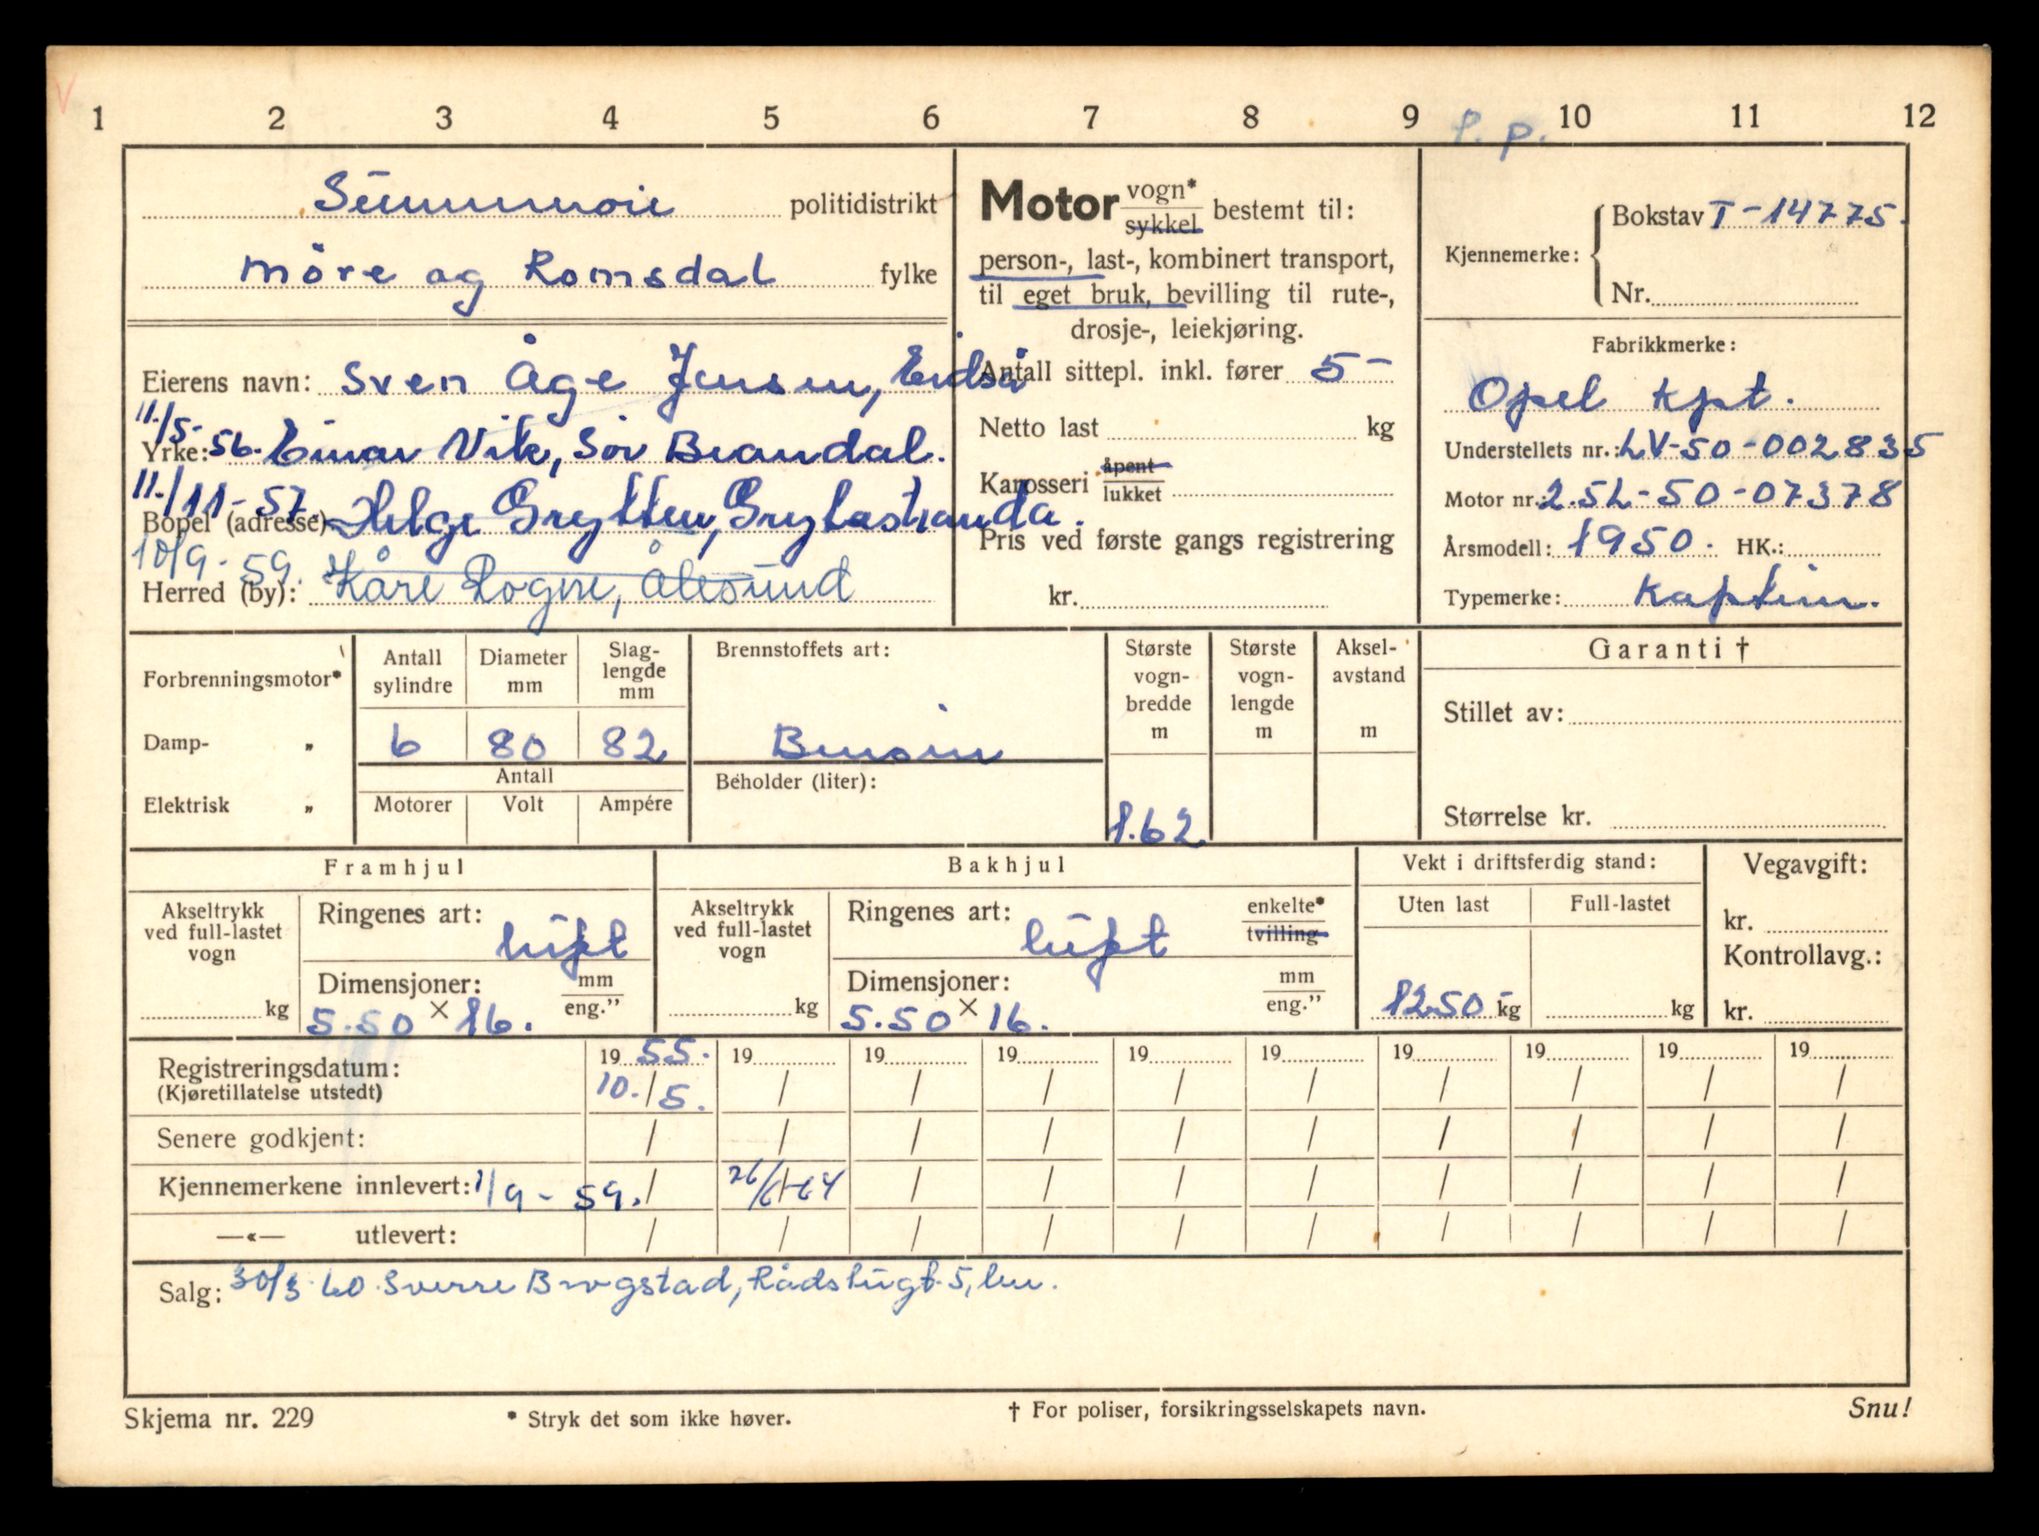 1 2 3 4 5 6 7 8 9 10 11 12
P. p.
Sunnmøre politidistrikt
Möre og Romsdal fylke
Eierens navn: Sven Åge Jensen, Eidså
11./5.-56. Einar Vik, Sör Brandal.
Yrke:
11./11-57. Helge Grytten, Grytastranda.
Bopel (adresse)
10/9-59. Kåre Rogne, Ålesund
Herred (by):
Motor vogn* sykkel bestemt til:
person-, last-, kombinert transport,
til eget bruk, bevilling til rute-,
drosje-, leiekjøring.
Antall sittepl. inkl. fører 5-
Netto last kg
Karosseri åpent lukket
Pris ved første gangs registrering
kr.
Kjennemerke: Bokstav T-14775.
Nr.
Fabrikkmerke:
Opel Kpt.
Understellets nr.: LV-50-002835
Motor nr.: 2.5L-50-07378
Årsmodell: 1950. HK.:
Typemerke: Kaptein.
Forbrenningsmotor*
Damp- „
Elektrisk „
Antall sylindre
6
Diameter mm
80
Slag-lengde mm
82
Antall
Motorer Volt Ampére
Brennstoffets art:
Bensin
Beholder (liter):
Største vogn-bredde m
1.62
Største vogn-lengde m
Aksel-avstand m
Garanti †
Stillet av:
Størrelse kr.
Framhjul
Akseltrykk ved full-lastet vogn
kg
Ringenes art: luft
Dimensjoner: mm eng.”
5.50 × 16.
Bakhjul
Akseltrykk ved full-lastet vogn
kg
Ringenes art: luft enkelte* tvilling
Dimensjoner: mm eng.”
5.50 × 16.
Vekt i driftsferdig stand:
Uten last Full-lastet
1250 kg kg
Vegavgift:
kr.
Kontrollavg.:
kr.
Registreringsdatum: 1955. 19 19 19 19 19 19 19 19 19
(Kjøretillatelse utstedt) 10./5. / / / / / / / / /
Senere godkjent: / / / / / / / / / /
Kjennemerkene innlevert: 1/9-59. / 26/6-64 / / / / / / / /
—«— utlevert: / / / / / / / / / /
Salg: 30/3-60. Sverre Brogstad, Rådstugt. 5, her.
Skjema nr. 229
* Stryk det som ikke høver.
† For poliser, forsikringsselskapets navn.
Snu!